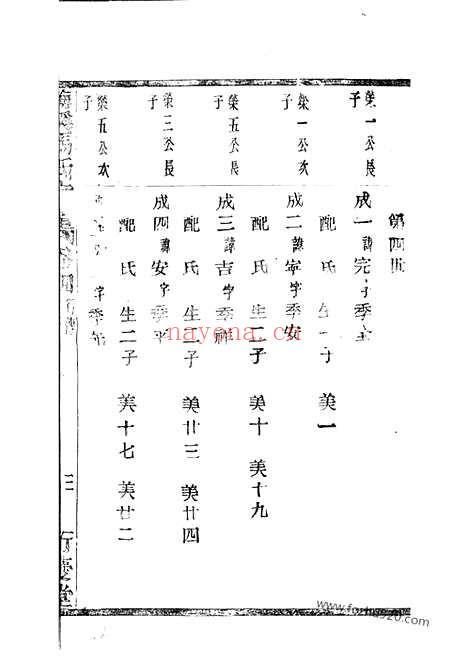 第四世
榮一公長子
成一諱完字季全
配 氏 生一子 美一
榮一公次子
成二諱寧字季安
配 氏 生二子 美十 美十九
榮五公長子
成三諱吉字季祥
配 氏 生二子 美廿三 美廿四
榮三公長子
成四諱安字季平
配 氏 生二子 美十七 美廿二
榮五公次子
字季
三
慶堂
nayona.cn
www.fortune920.com